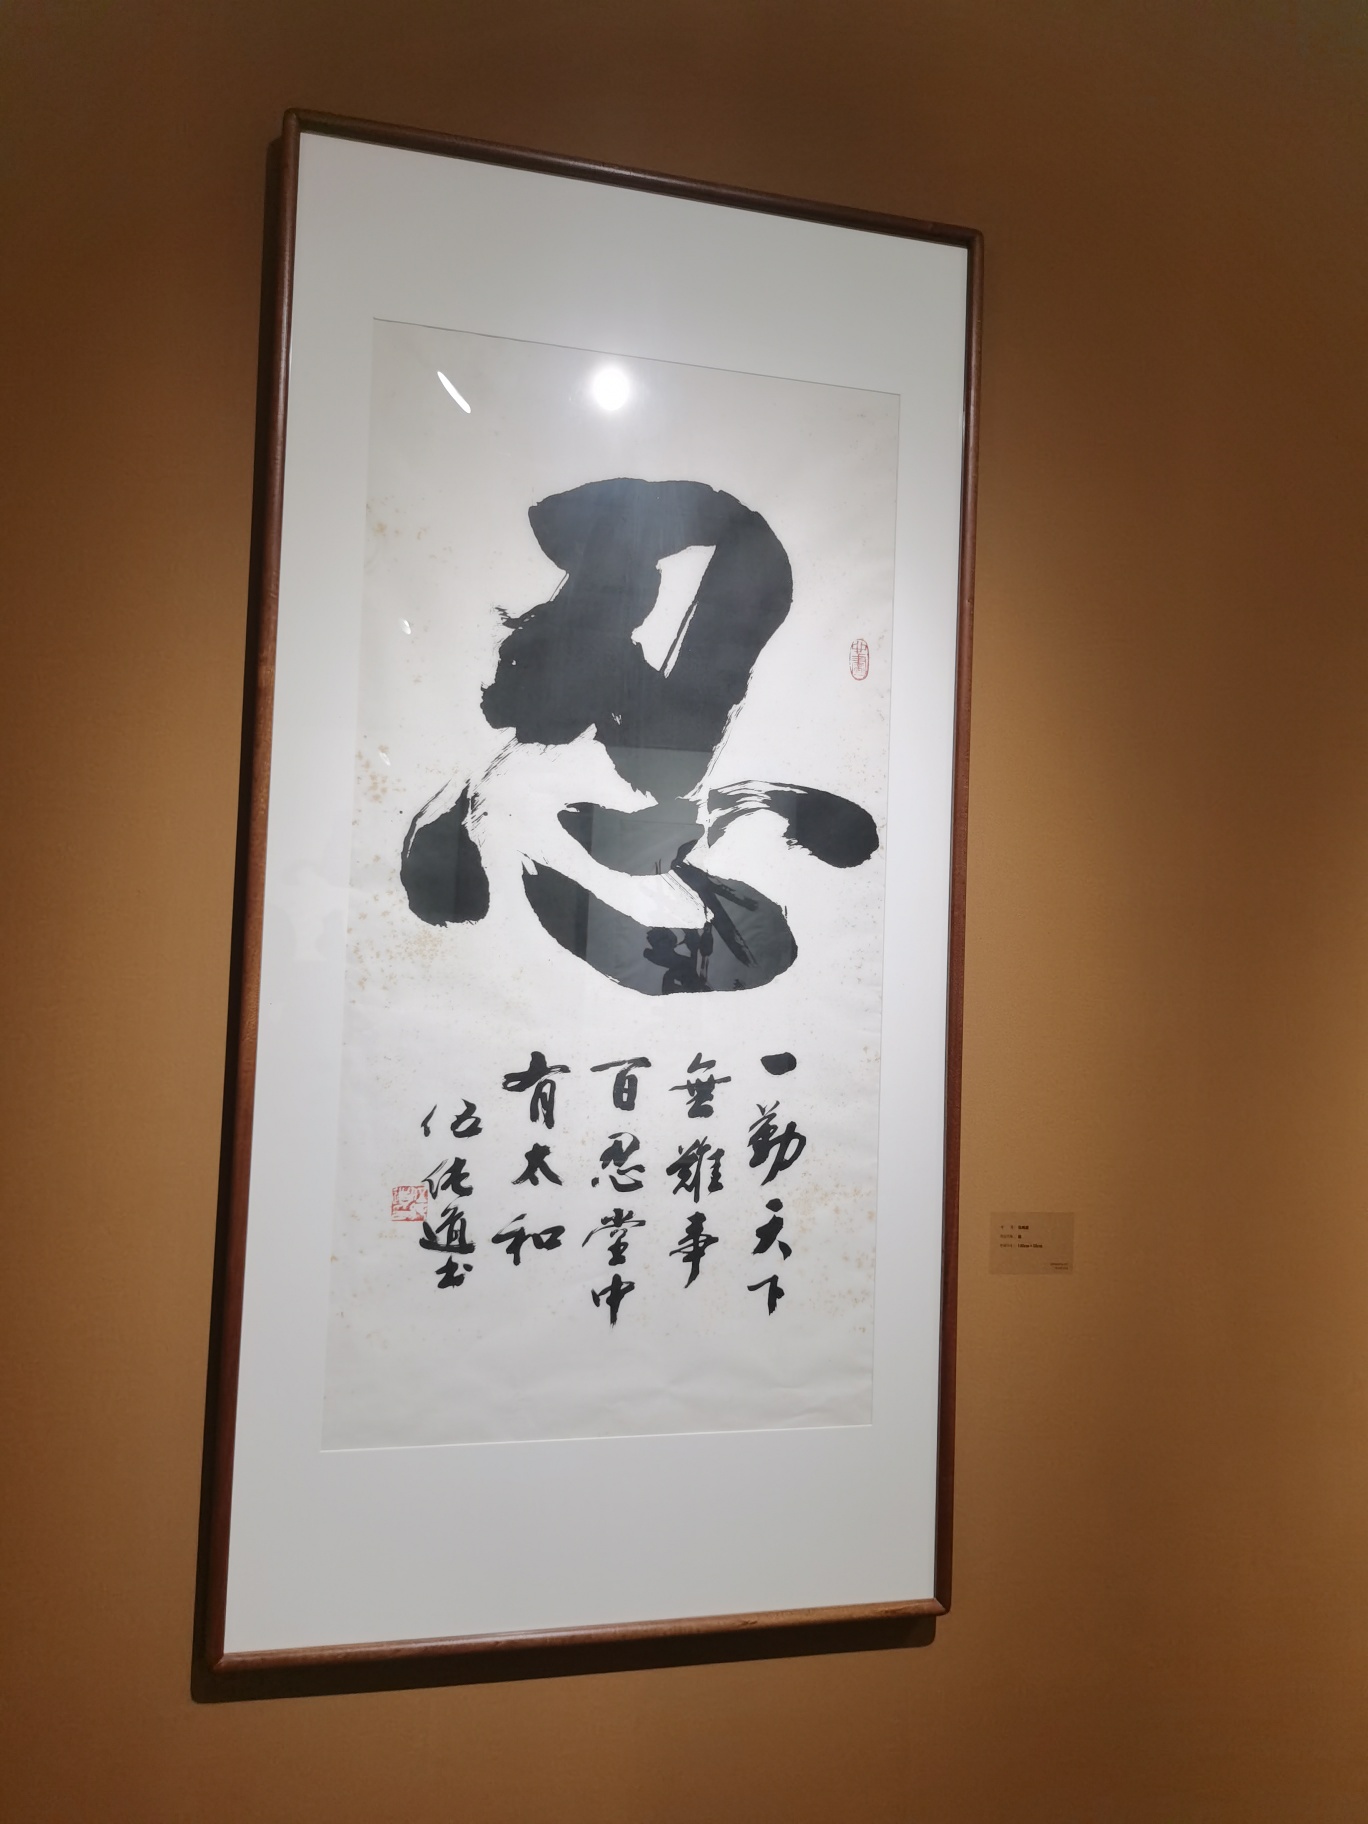 忍
一勤天下
無難事
百忍堂中
有太和
伍純道书